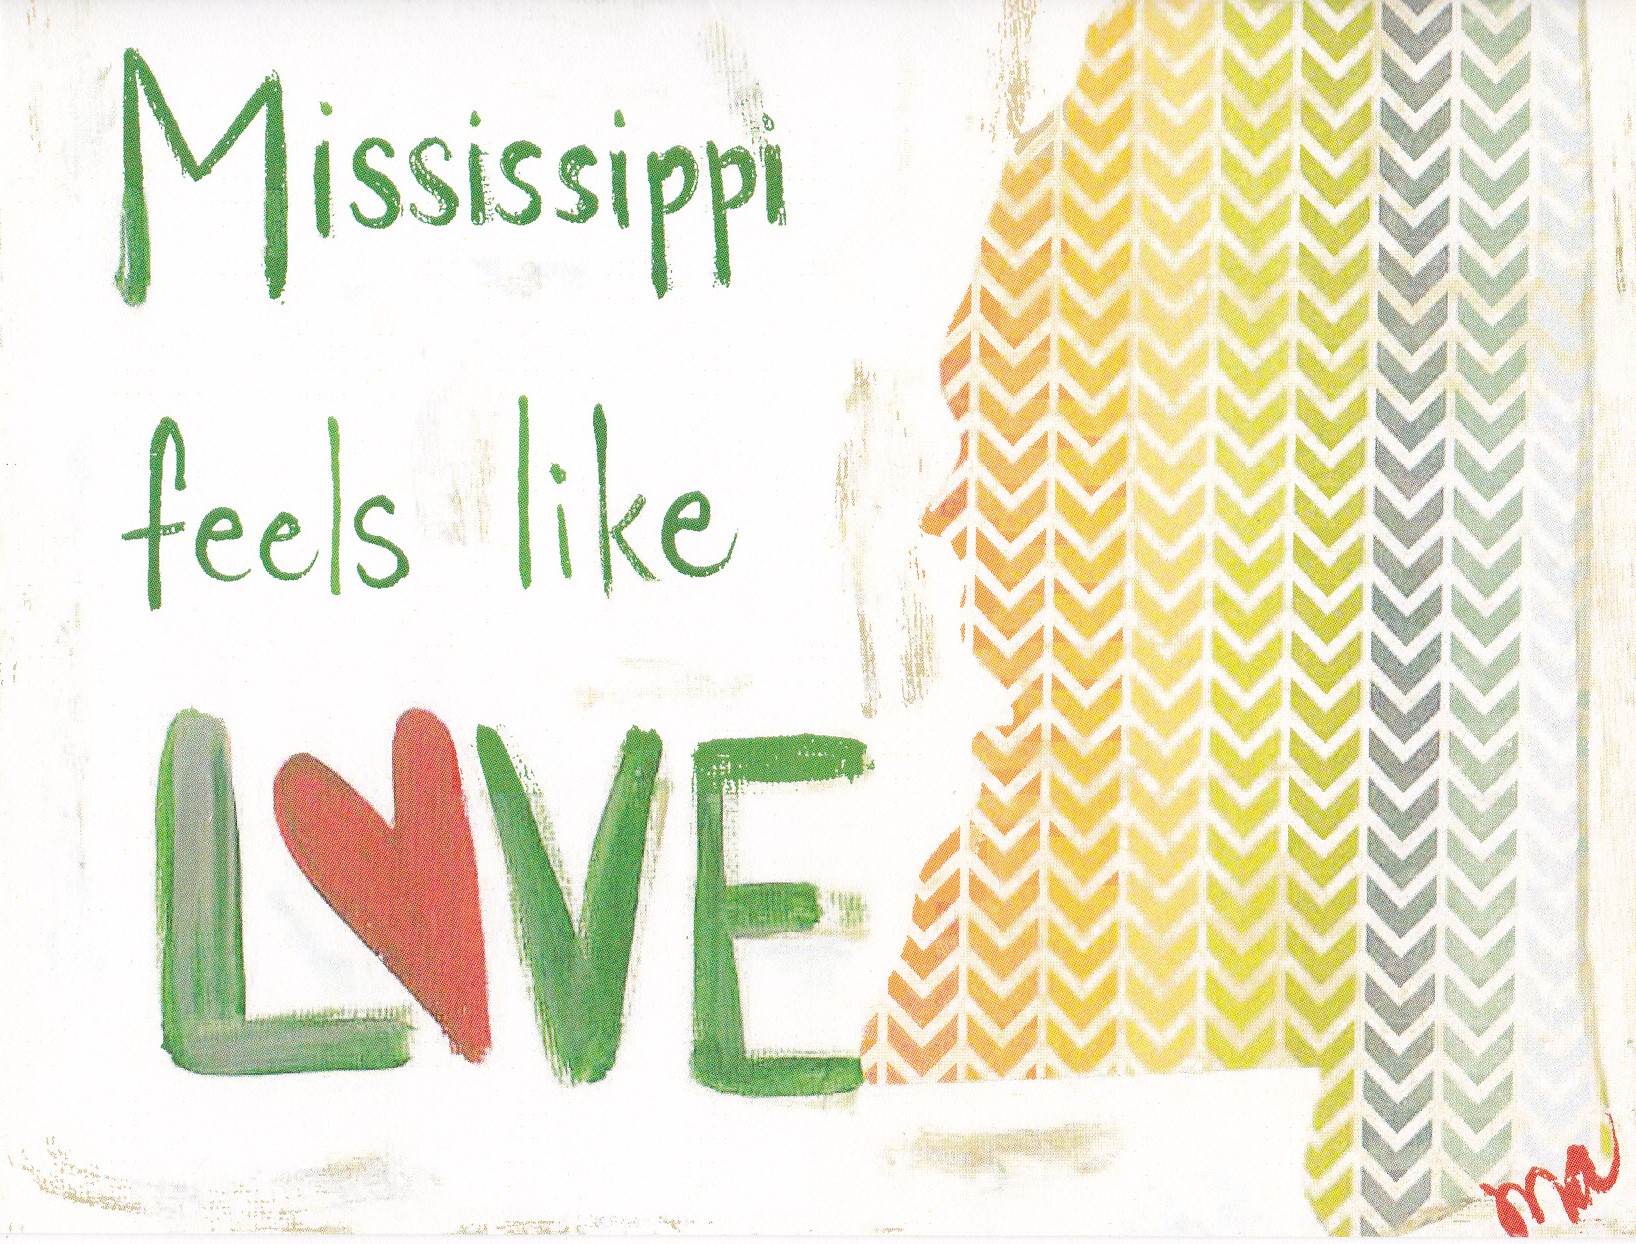 Mississippi
feels like
LOVE
ma